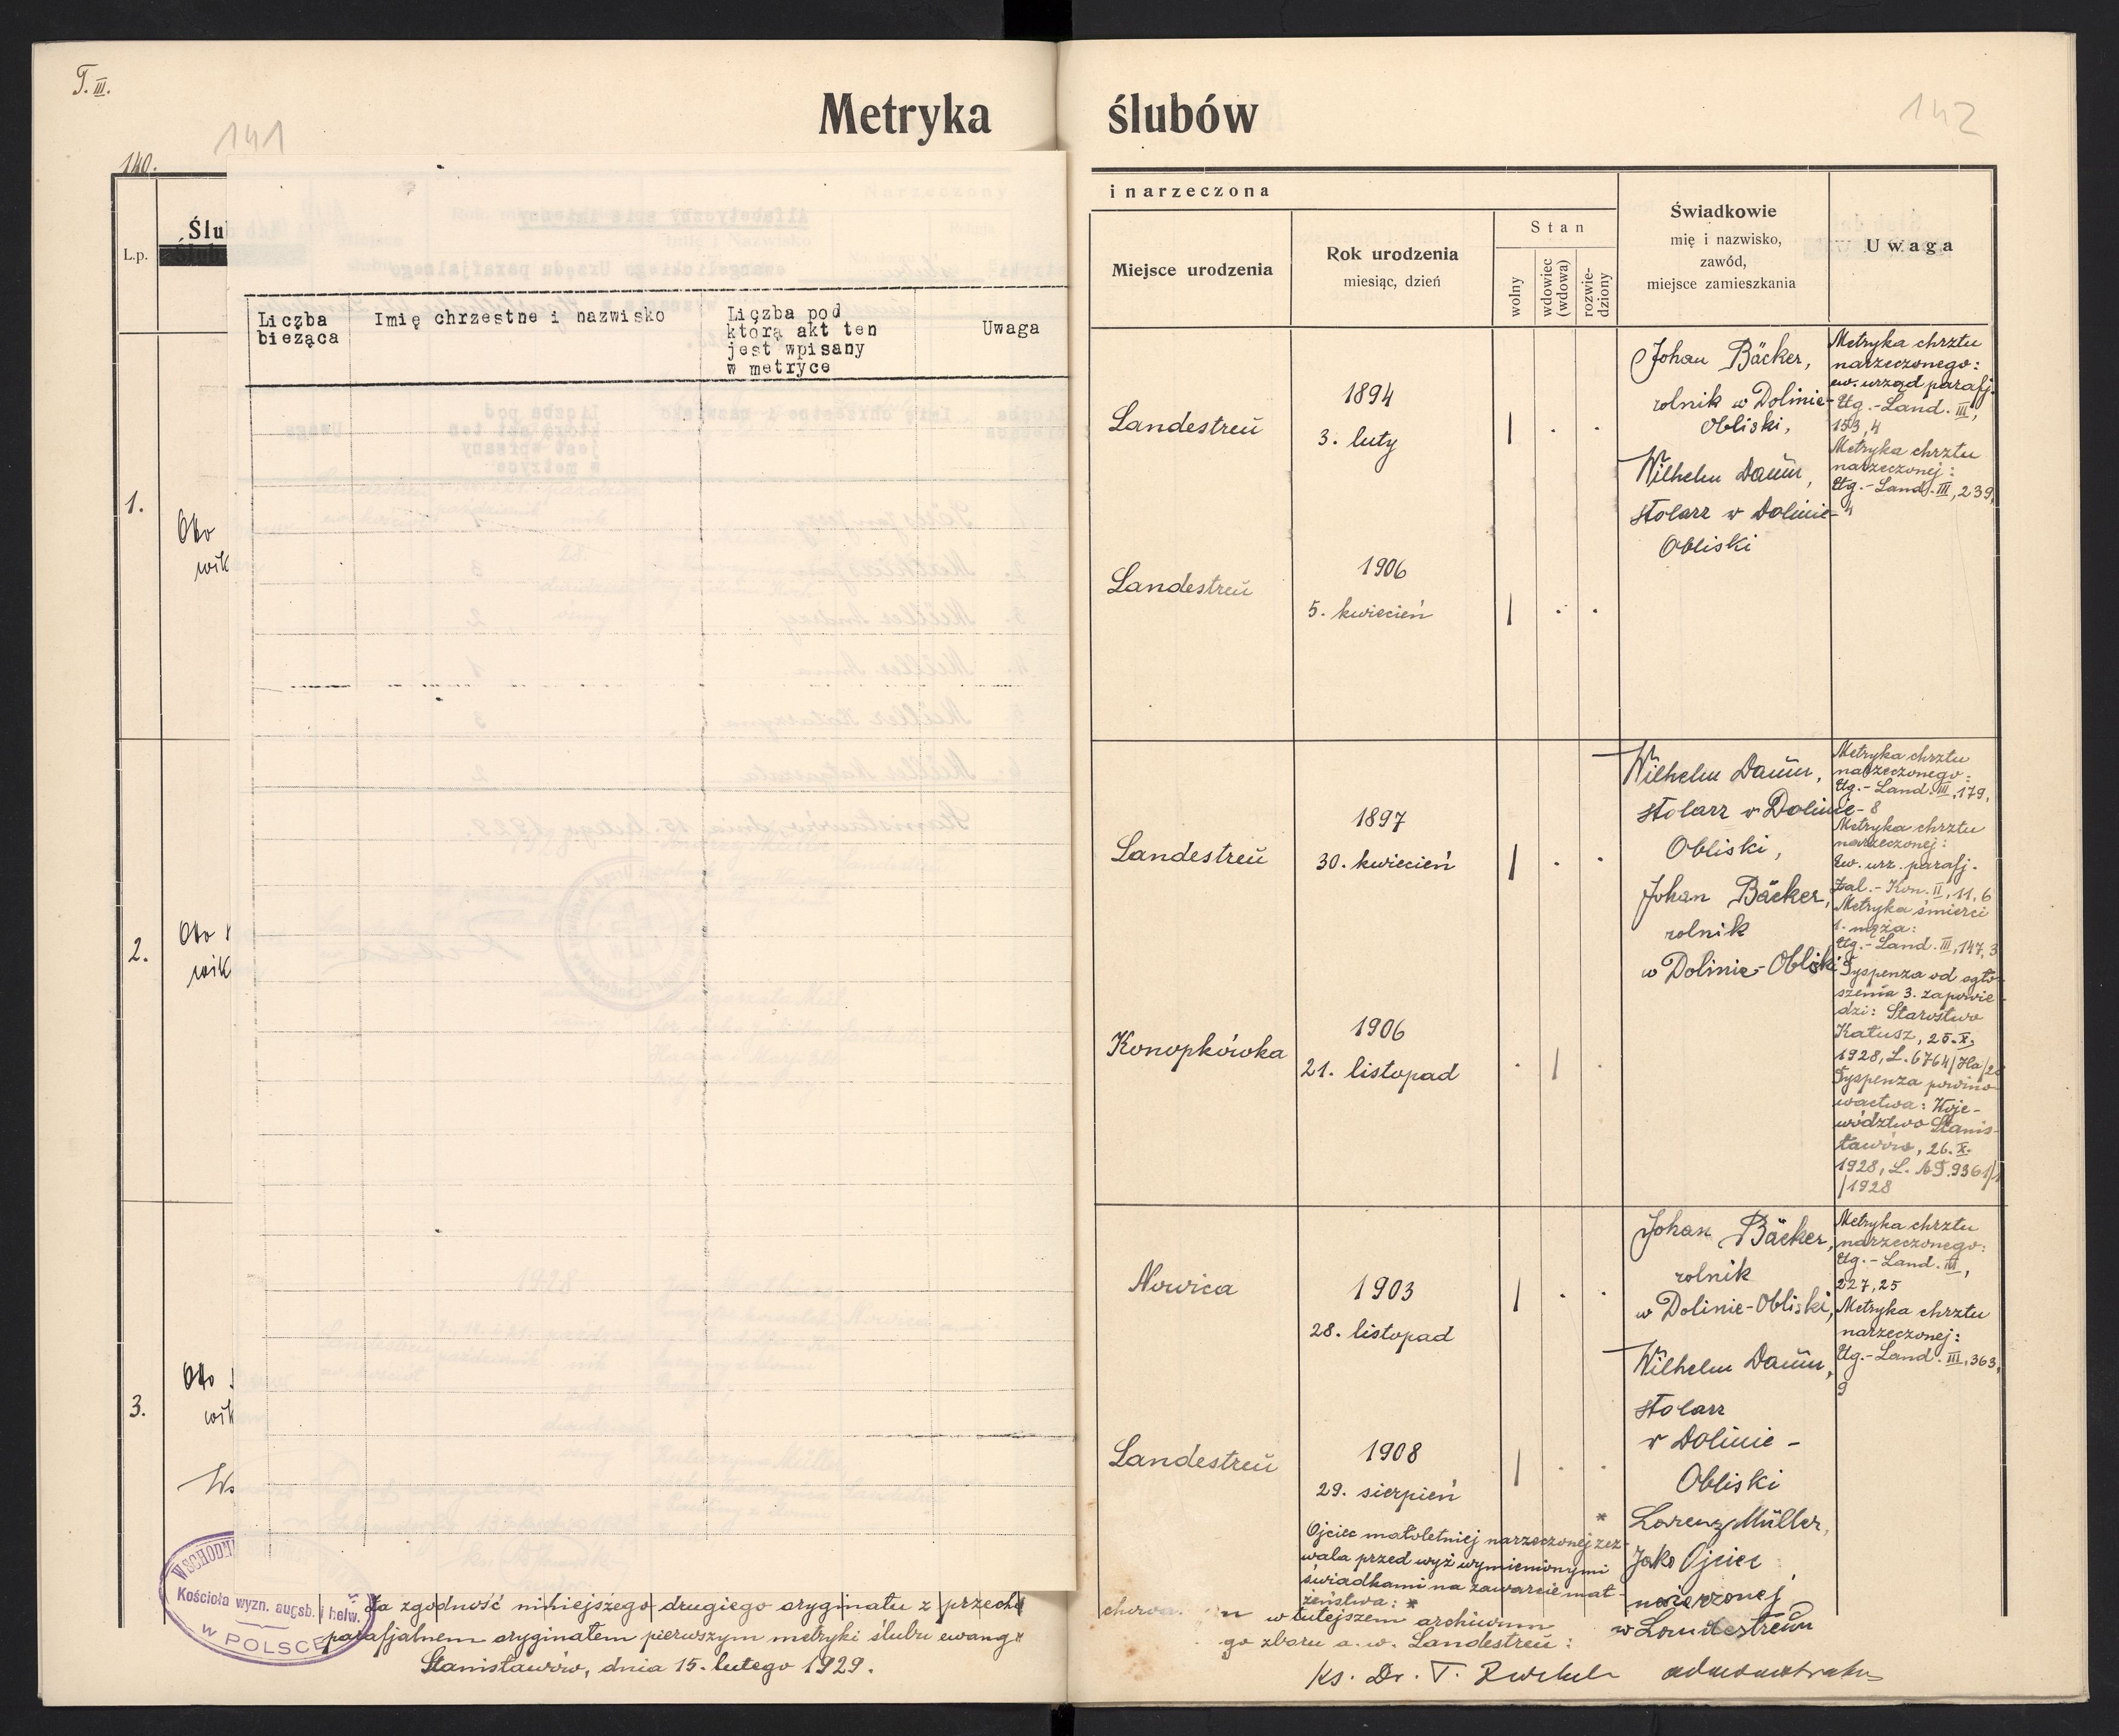 T. III.
Metryka ślubów
141
142
140.
L.p.
Ślu
Liczba bieżąca
Imię chrzestne i nazwisko
Liczba pod którą akt ten jest wpisany w metryce
Uwaga
i narzeczona
Miejsce urodzenia
Rok urodzenia
miesiąc, dzień
Stan
wolny
wdowiec (wdowa)
rozwie-dziony
Świadkowie
mię i nazwisko,
zawód,
miejsce zamieszkania
Uwaga
1.
wik
Landestreü
1894
3. luty
| . .
Landestreü
1906
5. kwiecień
| . .
Johan Bäcker,
rolnik w Dolinie-
Obliski,
Wilhelm Daum,
stolarz w Dolinie-
Obliski
Metryka chrztu
narzeczonego:
ew. urząd parafj.
Ug.-Land. III,
153,4
Metryka chrztu
narzeczonej:
Ug.-Land. III, 239,
4
2.
wik
Landestreü
1897
30. kwiecień
| . .
Konopkówka
1906
21. listopad
. | .
Wilhelm Daum,
stolarz w Dolinie-
Obliski,
Johan Bäcker,
rolnik
w Dolinie-Obliski
Metryka chrztu
narzeczonego:
Ug.-Land. III, 179,
8
Metryka chrztu
narzeczonej:
Ew. urz. parafj.
Zal.-Kon. II, 11, 6
Metryka śmierci
1. męża:
Ug.-Land. III, 147, 3
Dyspenza od ogło-
szenia 3. zapowie-
dzi: Starostwo
Kałusz, 25. X.
1928, L. 6764/Ha/28
Dyspenza powino-
wactwa: Woje-
wództwo Stanis-
ławów, 26. X.
1928, L. 9361/1
/1928
3.
wik
Nowica
1903
28. listopad
| . .
Landestreü
1908
29. sierpień
| . .
Johan Bäcker,
rolnik
w Dolinie-Obliski,
Wilhelm Daum,
stolarz
w Dolinie-
Obliski
* Lorenz Müller,
Jako Ojciec
w Landestreu
Metryka chrztu
narzeczonego:
Ug.-Land. III,
227, 25
Metryka chrztu
narzeczonej:
Ug.-Land. III, 363,
9
Ojciec małoletniej narzeczonej zez-
wala przed wyż wymienionymi
świadkami na zawarcie mał-
żeństwa: *
WSCHODNI
Kościoła wyzn. augsb. i helw.
W POLSCE
Za zgodność niniejszego drugiego oryginału z przecho
w tutejszem archiwum
parafjalnem oryginałem pierwszym metryki ślubu ewang
go zboru a.w. Landestreü:
Stanisławów, dnia 15. lutego 1929.
Ks. Dr.